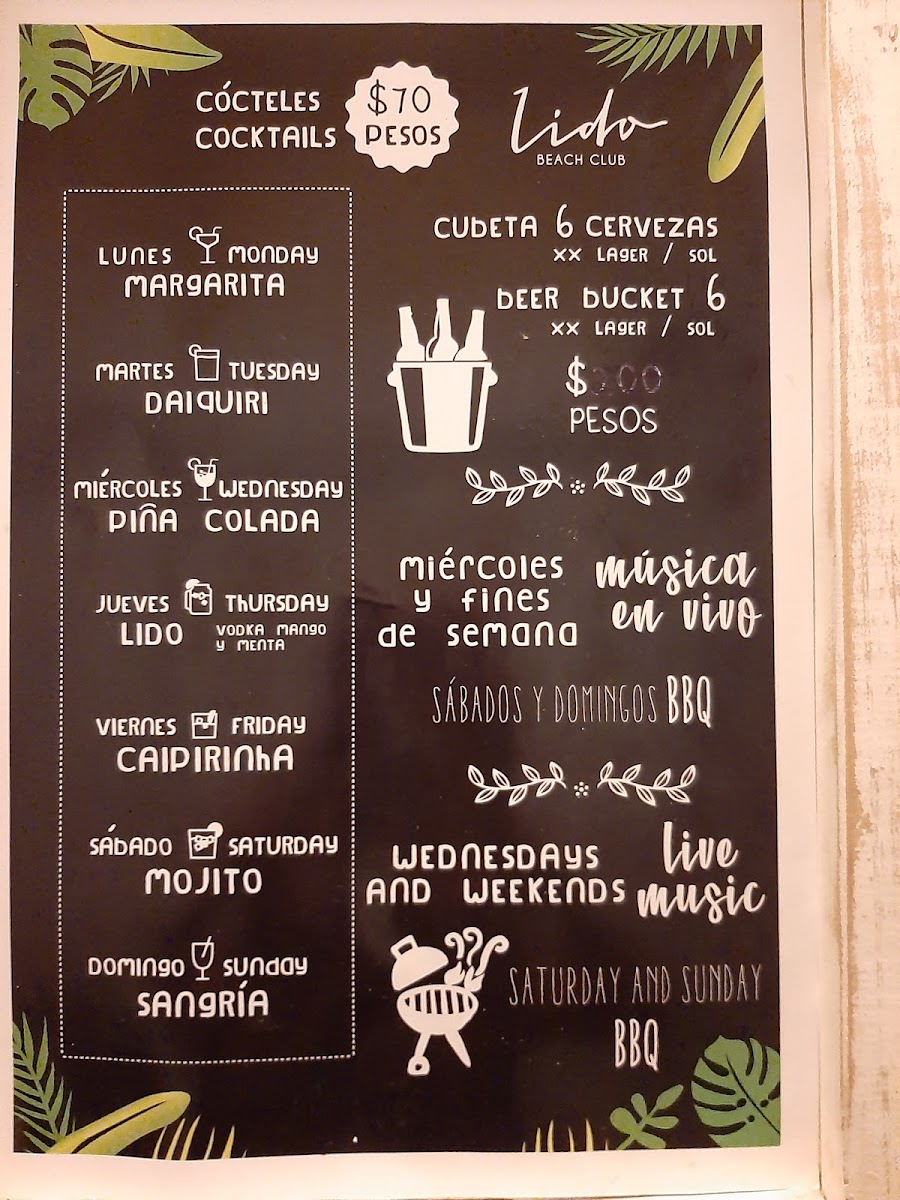 CÓCTELES
COCKTAILS
$70
PESOS
Lido
BEACH CLUB
LUNES MONDAY
MARGARITA
MARTES TUESDAY
DAIQUIRI
MIÉRCOLES WEDNESDAY
PIÑA COLADA
JUEVES THURSDAY
LIDO VODKA MANGO
Y MENTA
VIERNES FRIDAY
CAIPIRINHA
SÁBADO SATURDAY
MOJITO
DOMINGO SUNDAY
SANGRÍA
CUBETA 6 CERVEZAS
XX LAGER / SOL
BEER BUCKET 6
XX LAGER / SOL
$
PESOS
miércoles
y fines
de semana
música
en vivo
SÁBADOS Y DOMINGOS BBQ
WEDNESDAYS
AND WEEKENDS
live
music
SATURDAY AND SUNDAY
BBQ